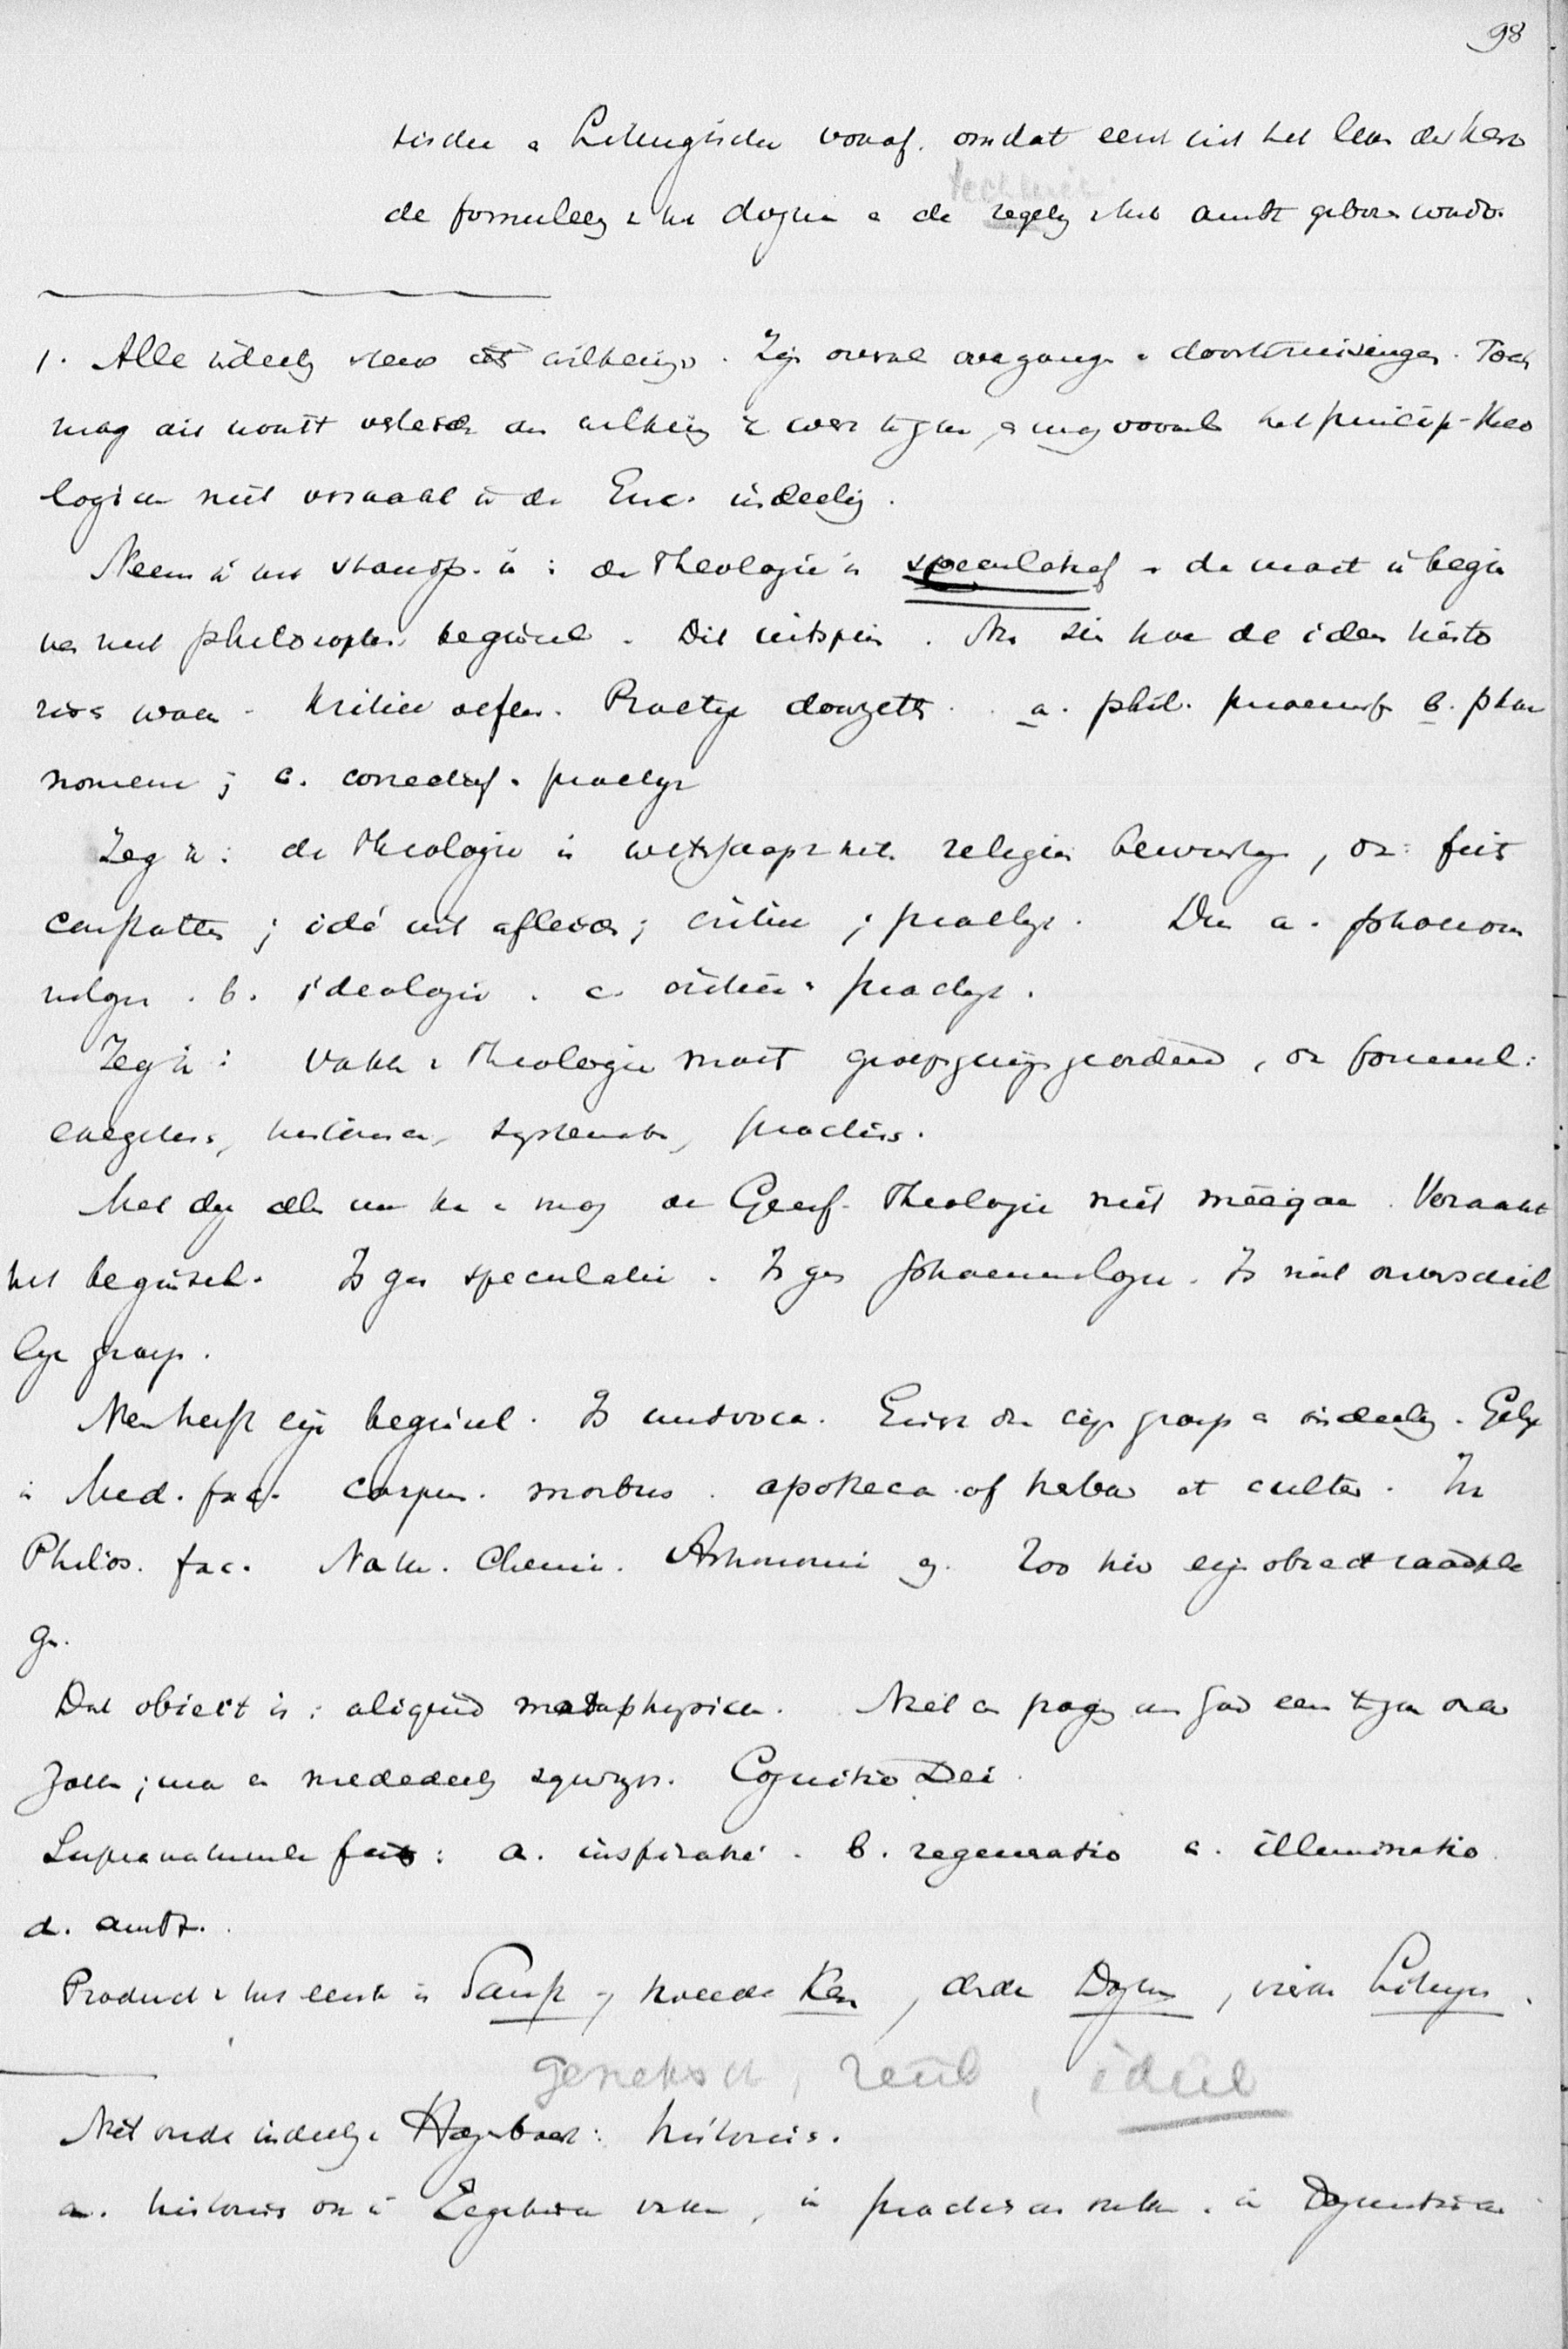 98
en Liturgischen vooraf. omdat eerst uit het leven der kerk
technici
de formuleering v. het dogma en de regeling v. het ambt geboren wordt.
1. Alle indeeling steeds iets willekeurigs. Zijn overal overgangen en doorkruisingen. Toch
mag dit nooit verleiden om willekeurig te werk te gaan, en mag vooral het princip. Theo
logiae niet verzaakt in de Enc. indeeling.
Neem ik het standp. in: de Theologie is speculatief en dan moet ik begin
nen met philosophisch beginsel. Dit uitspinnen. Dan zien hoe de ideeën histo
risch waren. Kritiek oefenen. Practijk doorzetten. a. phil. b. phae
nomena; c. correctief. practijk
Zeg ik: de Theologie is wetenschap v. het religieus bewustzijn, dan: feit
constateren; idee uit afleiden; critiek; practijk. Dus a. phaenom
enologie. b. ideologie. c. critiek en practijk.
Zeg ik: vakken v. Theologie moet groepsgewijs geordend, dan formeel:
exegetisch, historisch, systematisch, practisch.
Met deze alle nu kan en mag de Geref. Theologie niet meegaan. Verzaakt
het beginsel. Is geen speculatie. Is geen phaenomenologie. Is niet onverschil
lige groep.
Men heeft eigen beginsel. Is univoca. Eischt dus eigen groep en indeeling. Gelijk
in Med. fac. corpus. morbus. apotheca of herba et culter. In
Philos. fac. Natk. Chemie. Astronomie Zoo hier eigen object raadple
gen.
Dat object is: aliquid metaphysicum. Niet een poging om God een te gaan
maar een mededeeling zijnerzijds. Cognitio Dei.
Supranatureele feit: a. inspiratie. b. regeneratio c. illuminatio
d. ambt.
Product v. het eerste is Schrift, tweede Kerk, derde Dogma, vierde Liturgie.
genetisch, reëel, ideëel
Niet oude indeeling v. Hagenbach: historisch.
a. historisch ook in Exegetische vakken, in practische vakken. in Dogmatische